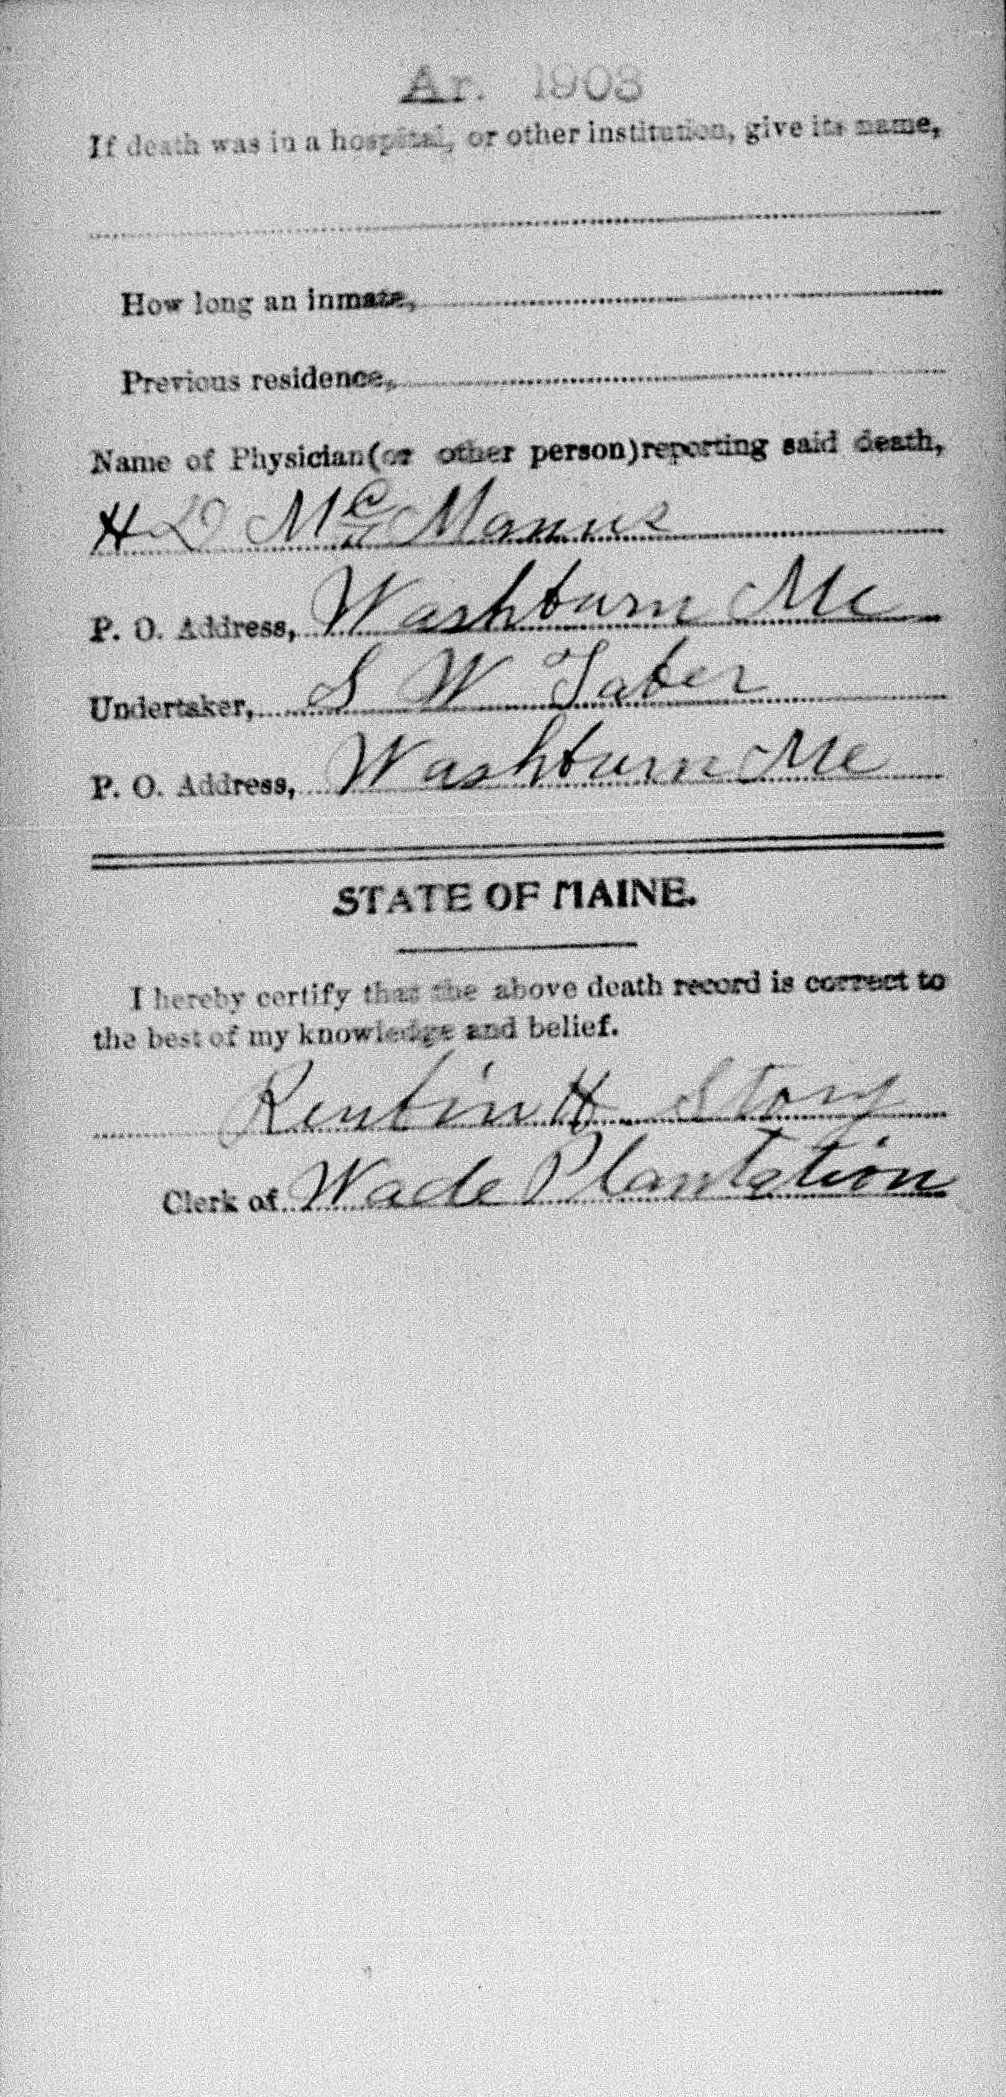 Ar. 1903
If death was in a hospital, or other institution, give its name,
How long an inmate,
Previous residence,
Name of Physician (or other person) reporting said death,
H D McManus
P. O. Address, Washburn Me
Undertaker, S W Taber
P. O. Address, Washburn Me
STATE OF MAINE.
I hereby certify that the above death record is correct to
the best of my knowledge and belief.
Reubin H Story
Clerk of Wade Plantation